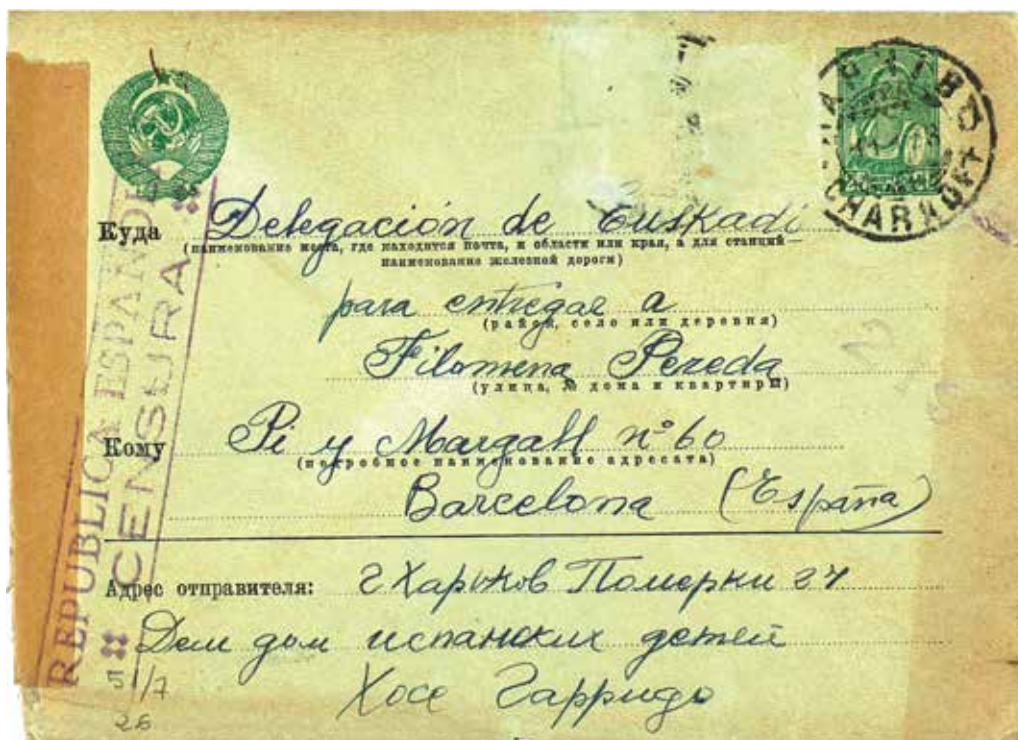 CHARKOW
REPUBLICA ESPAÑOLA
CENSURA
Куда Delegación de Euskadi
(наименование места, где находится почта, и области или края, а для станций—
наименование железной дороги)
para entregar a
(район, село или деревня)
Filomena Pereda
(улица, № дома и квартиры)
Кому Pi y Margall nº 60
(подробное наименование адресата)
Barcelona (España)
Адрес отправителя: г Харьков Померки 24
Дет дом испанских детей
Хосе Гарридо
Л 1/7
26